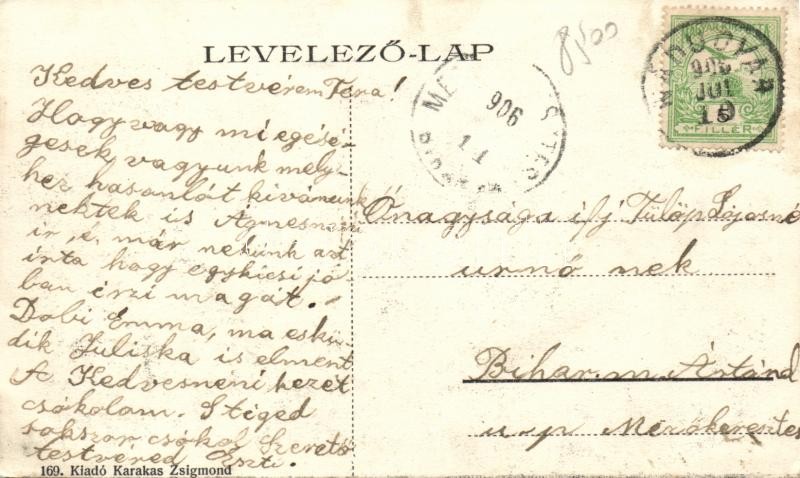 LEVELEZŐ-LAP
8500
NÁDUDVAR
906
JUL
15
4 FILLÉR
906
11
Kedves testvérem Tera!
Hogy vagy mi egésé-
gesek vagyunk mely-
hez hasonlót kivánunk
nektek is Ágnesnéni
ir, é már nekünk azt
irta hogy egy kicsi jó-
ban érzi magát.
Dobi Emma, ma eskü-
dik Juliska is elment
A Kedvesneni kezét
csókolom. S téged
sokszor csókol szerető
testvered Eszti.
Őnagysága ifj Fülöp Lajosné
urnő nek
Bihar. m Ártánd
u.p Mezőkeresztes
169. Kiadó Karakas Zsigmond